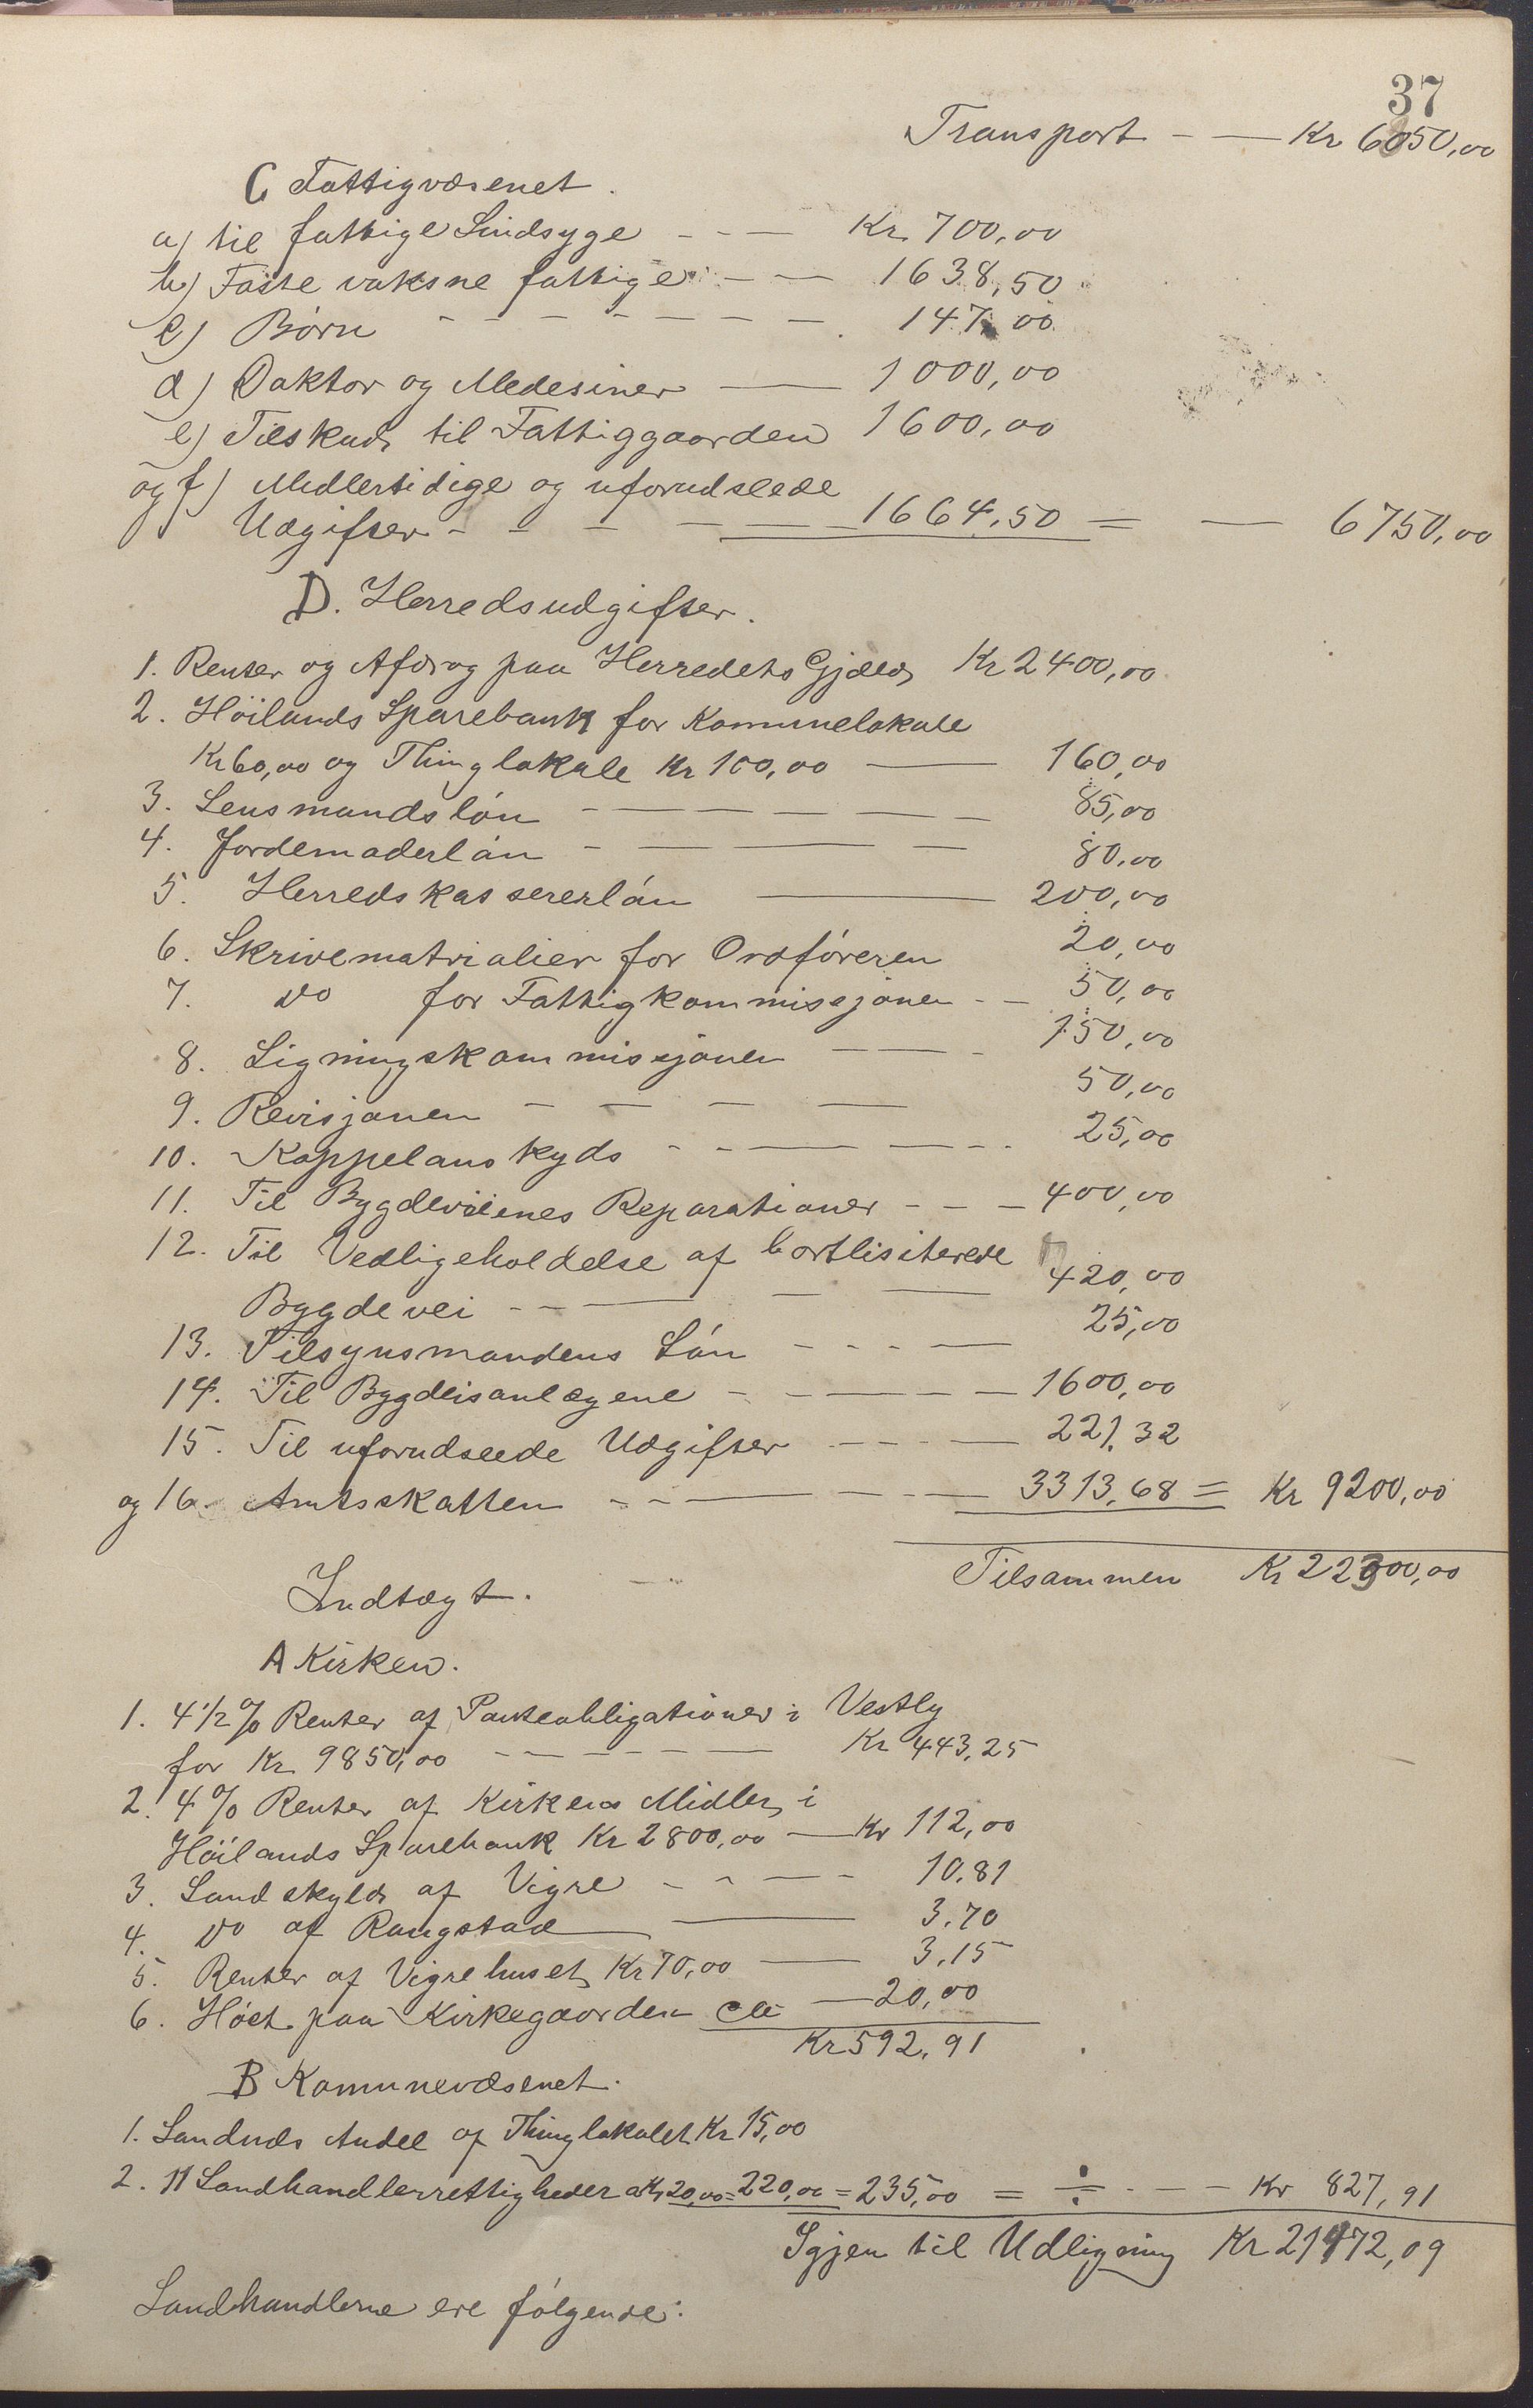 37
Transport - — Kr 6350,00
C Fattigvæsenet.
a) til fattige Sindsyge - - — Kr. 700,00
b) Faste voksne fattige - — 1638,50
c) Børn - - - - - - - 147,00
d) Doktor og Medesiner — 1000,00
e) Tilskud til Fattiggaarden 1600,00
og f) Midlertidige og uforudseede
Udgifter - - - — — 1664,50 = — 6750,00
D. Herredsudgifter.
1. Renter og Afdrag paa Herredets Gjæld Kr 2400,00
2. Höilands Sparebank for Komunelokale
Kr 60,00 og Thinglokale Kr 100,00 — 160,00
3. Lensmandslön - — — — — 85,00
4. Jordemoderlön - — — — 80,00
5. Herredskassererlön — 200,00
6. Skrivematrialier for Ordföreren 20,00
7. Do for Fattigkommissjonen - — 50,00
8. Ligningskommissjonen — — - 150,00
9. Revisjonen - — — — 50,00
10. Kappelanskyds - - — — - 25,00
11. Til Bygdeveienes Reparationer - - — 400,00
12. Til Vedligeholdelse af bortlisiterede
Bygdevei - - — — — 420,00
13. Tilsynsmandens Lön - - - — 25,00
14. Til Bygdeisanlægene - - — — — 1600,00
15. Til uforudseede Udgifter - - - — 221,32
og 16. Amtsskatten - - — — - — 3313,68 = Kr 9200,00
Tilsammen Kr 22300,00
Indtægt.
A Kirken.
1. 4 1/2 % Renter af Panteobligationer i Vestly
for Kr 9850,00 - - - - - — Kr 443,25
2. 4 % Renter af Kirkens Midler i
Höilands Sparebank Kr 2800,00 — Kr 112,00
3. Landskyld af Vigre - - — - 10,81
4. Do af Rangstad — 3,70
5. Renter af Vigrehuset Kr 70,00 — 3,15
6. Höet paa Kirkegaarden — 20,00
Kr 592,91
B Komunevæsenet.
1. Sandnæs Andel af Thinglokalet Kr 15,00
2. 11 Landhandlerrettigheder a Kr 20,00 = 220,00 = 235,00 = ÷ - - — Kr 827,91
Igjen til Udligning Kr 21472,09
Landhandlerne ere følgende: